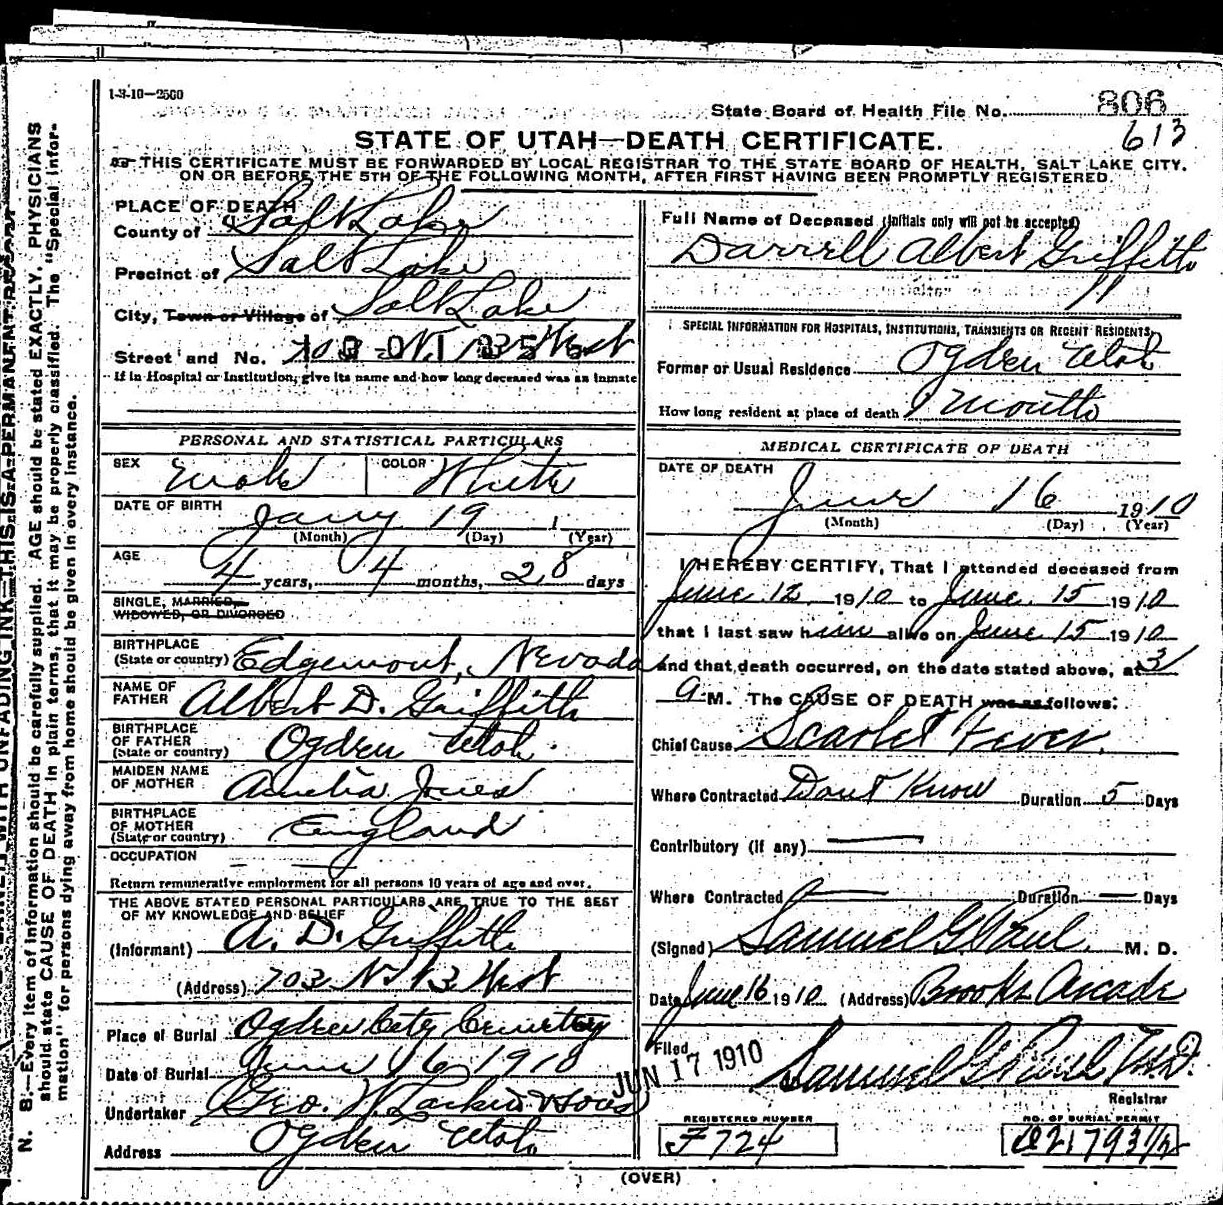 1-3-10—2500
State Board of Health File No. 806
613
STATE OF UTAH—DEATH CERTIFICATE.
THIS CERTIFICATE MUST BE FORWARDED BY LOCAL REGISTRAR TO THE STATE BOARD OF HEALTH, SALT LAKE CITY,
ON OR BEFORE THE 5TH OF THE FOLLOWING MONTH, AFTER FIRST HAVING BEEN PROMPTLY REGISTERED.
PLACE OF DEATH
County of Salt Lake
Precinct of Salt Lake
City, Town or Village of Salt Lake
Street and No. 703 N. 13 West
If in Hospital or Institution, give its name and how long deceased was an inmate
PERSONAL AND STATISTICAL PARTICULARS
SEX Male COLOR White
DATE OF BIRTH Jany 19 1
(Month) (Day) (Year)
AGE 4 years, 4 months, 28 days
SINGLE, MARRIED,
WIDOWED, OR DIVORCED
BIRTHPLACE
(State or country) Edgemont, Nevada
NAME OF
FATHER Albert D. Griffith
BIRTHPLACE
OF FATHER
(State or country) Ogden Utah
MAIDEN NAME
OF MOTHER Amelia Jones
BIRTHPLACE
OF MOTHER
(State or country) England
OCCUPATION — —
Return remunerative employment for all persons 10 years of age and over.
THE ABOVE STATED PERSONAL PARTICULARS ARE TRUE TO THE BEST
OF MY KNOWLEDGE AND BELIEF
(Informant) A. D. Griffith
(Address) 703 N. 13 West
Place of Burial Ogden City Cemetery
Date of Burial June 16 1910
Undertaker Geo. W. Larkin & Sons
Address Ogden Utah
Full Name of Deceased (Initials only will not be accepted)
Darrell Albert Griffith
SPECIAL INFORMATION FOR HOSPITALS, INSTITUTIONS, TRANSIENTS OR RECENT RESIDENTS
Former or Usual Residence Ogden Utah
How long resident at place of death 1 month
MEDICAL CERTIFICATE OF DEATH
DATE OF DEATH
June 16 1910
(Month) (Day) (Year)
I HEREBY CERTIFY, That I attended deceased from
June 12 1910 to June 15 1910
that I last saw him alive on June 15 1910
and that death occurred, on the date stated above, at 3
a M. The CAUSE OF DEATH was as follows:
Chief Cause Scarlet Fever.
Where Contracted Dont Know Duration 5 Days
Contributory (if any) —
Where Contracted — Duration — Days
(Signed) Samuel G. Paul M. D.
Date June 16 1910 (Address) Brooks Arcade
Filed JUN 17 1910
Samuel G. Paul M.D.
Registrar
REGISTERED NUMBER
F724
NO. OF BURIAL PERMIT
21793 1/2
(OVER)
THIS IS A PERMANENT RECORD
N. B.—Every item of information should be carefully supplied. AGE should be stated EXACTLY. PHYSICIANS
should state CAUSE OF DEATH in plain terms, that it may be properly classified. The "Special Infor-
mation" for persons dying away from home should be given in every instance.